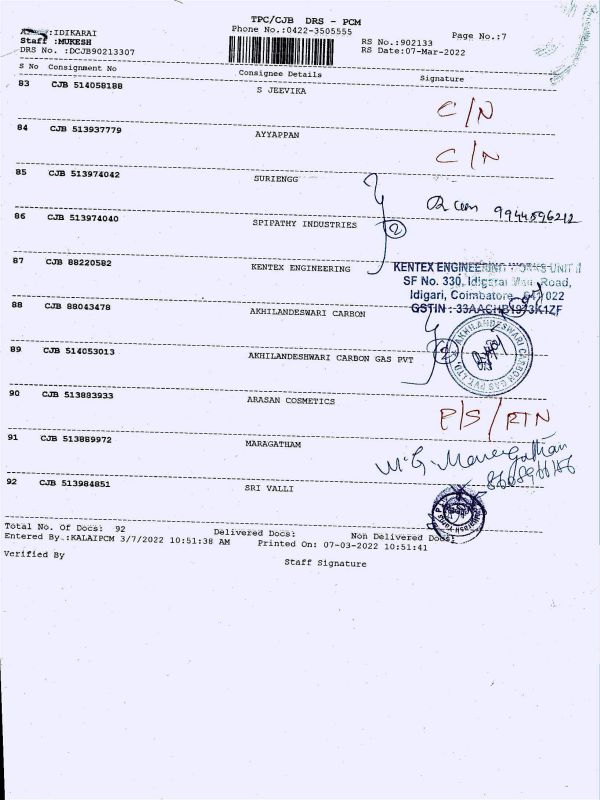 TPC/CJB DRS - PCM
Phone No.:0422-3505555
Page No.:7
:IDIKARAI
Staff :MUKESH
DRS No. :DCJB90213307
RS No.:902133
RS Date:07-Mar-2022
S No Consignment No Consignee Details Signature
83 CJB 514058188 S JEEVIKA C/N
84 CJB 513937779 AYYAPPAN C/N
85 CJB 513974042 SURIENGG
9944596212
86 CJB 513974040 SPIPATHY INDUSTRIES 2
87 CJB 88220582 KENTEX ENGINEERING
KENTEX ENGINEERING WORKS UNIT II
SF No. 330, Idigarai Main Road,
Idigari, Coimbatore - 641 022
88 CJB 88043478 AKHILANDESWARI CARBON
AKHILANDESWARI CARBON GAS PVT LTD
89 CJB 514053013 AKHILANDESHWARI CARBON GAS PVT 2
90 CJB 513883933 ARASAN COSMETICS P/S/RTN
91 CJB 513889972 MARAGATHAM
92 CJB 513984851 SRI VALLI
Total No. Of Docs: 92 Delivered Docs: Non Delivered Docs:
Entered By.:KALAIPCM 3/7/2022 10:51:38 AM Printed On: 07-03-2022 10:51:41
Verified By Staff Signature